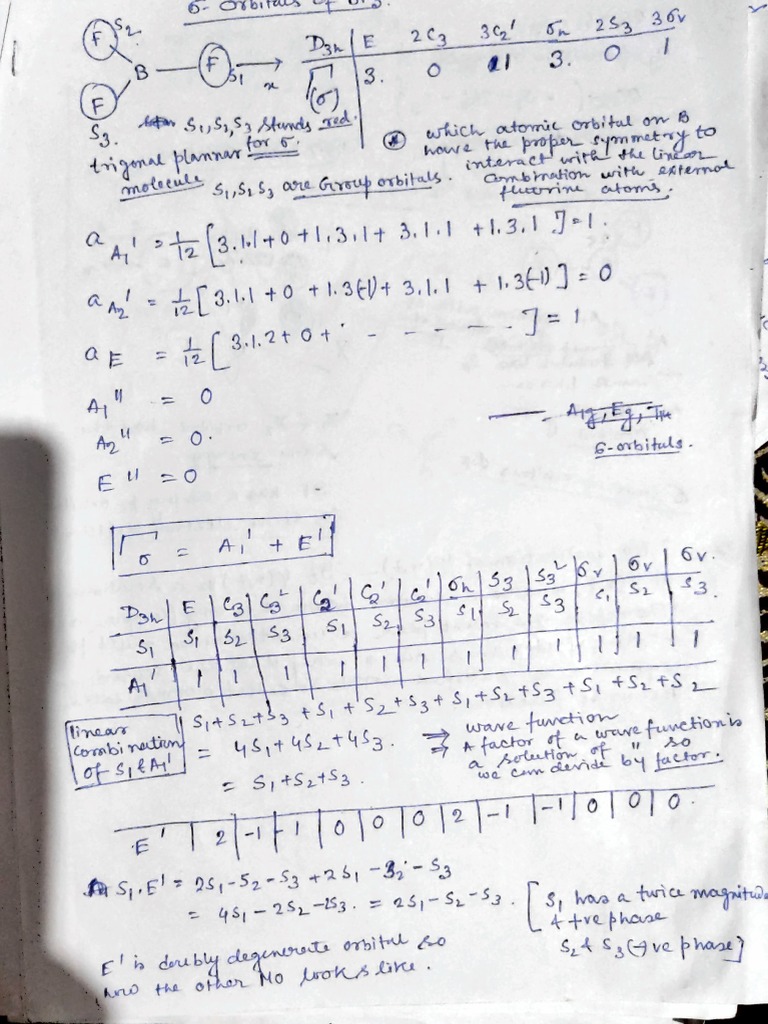 σ- Orbitals of BF3.
F S2
B F S1
F
S3.
D3h E 2C3 3C2' σh 2S3 3σv
Γ(σ) 3. 0 1 3. 0 1
S1, S2, S3 stands red. for σ.
trigonal planner molecule
S1, S2 S3 are Group orbitals.
which atomic orbital on B
have the proper symmetry to
interact with the linear
combination with external
fluorine atoms.
a A1' = 1/12 [3.1.1 + 0 + 1.3.1 + 3.1.1 + 1.3.1.] = 1.
a A2' = 1/12 [3.1.1 + 0 + 1.3(-1) + 3.1.1 + 1.3(-1)] = 0
a E = 1/12 [3.1.2 + 0 + - - - - - - ] = 1
A1'' = 0
A2'' = 0.
E'' = 0
A1g, Eg,
σ-orbitals.
Γσ = A1' + E'
D3h E C3 C3² C2' C2' C2' σh S3 S3² σv σv σv.
S1 S1 S2 S3 S1 S2 S3 S1 S2 S3 S1 S2 S3.
A1' 1 1 1 1 1 1 1 1 1 1 1 1
S1+S2+S3 + S1 + S2 + S3 + S1 + S2 + S3 + S1 + S2 + S2
linear combination of S1 & A1'
= 4S1 + 4S2 + 4S3.
= S1 + S2 + S3.
⇒ wave function
⇒ A factor of a wave function is
a solution of " so
we can devide by factor.
E' 2 -1 -1 0 0 0 2 -1 -1 0 0 0.
S1.E' = 2S1 - S2 - S3 + 2S1 - S2 - S3
= 4S1 - 2S2 - 2S3. = 2S1 - S2 - S3.
[S1 has a twice magnitude
& +ve phase
S2 & S3 (-)ve phase]
E' is doubly degenerate orbital so
how the other MO looks like.